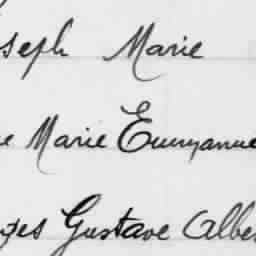 seph Marie
e Marie Emmanue
ges Gustave Albe